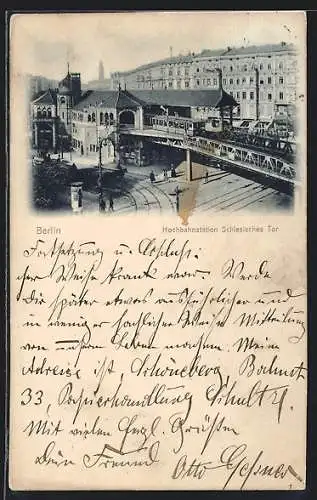 Berlin
Hochbahnstation Schlesisches Tor
Fortsetzung u. Schluss:
der Weise krank war. Werde
Dir später etwas ausführlicher und
in weniger Weise Mitteilung
von machen. Meine
Adresse ist, Schöneberg, Bahnstr
33, Papierhandlung Schultz.
Mit vielen herzl. Grüßen
Dein Freund Otto Gessner